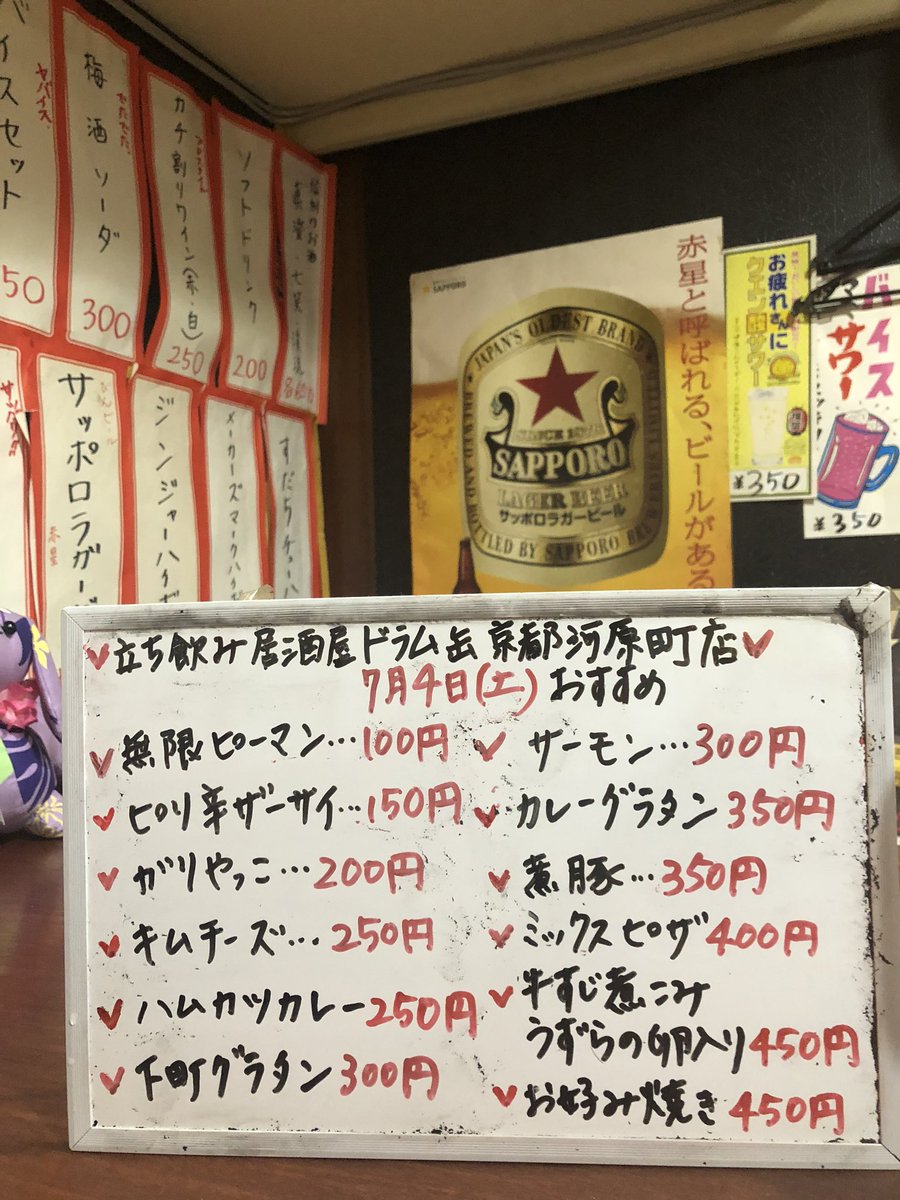 イスセット
ヤバイス
50
梅酒ソーダ
300
カチ割りワイン(赤・白)
250
ソフトドリンク
200
サッポロラガー
赤星
ジンジャーハイボ
メーカーズマークハイ
すだちチューハ
SAPPORO
JAPAN'S OLDEST BRAND
SINCE
SAPPORO
LAGER BEER
サッポロラガービール
BREWED AND BOTTLED BY SAPPORO BREWERIES
赤星と呼ばれる、ビールがある
お疲れさんに
クエン酸サワー
¥350
バイス
サワー
¥350
立ち飲み居酒屋ドラム缶京都河原町店
7月4日(土)おすすめ
無限ピーマン…100円
ピリ辛ザーサイ…150円
ガリやっこ…200円
キムチーズ…250円
ハムカツカレー250円
下町グラタン300円
サーモン…300円
カレーグラタン350円
煮豚…350円
ミックスピザ400円
牛すじ煮こみ
うずらの卵入り450円
お好み焼き450円